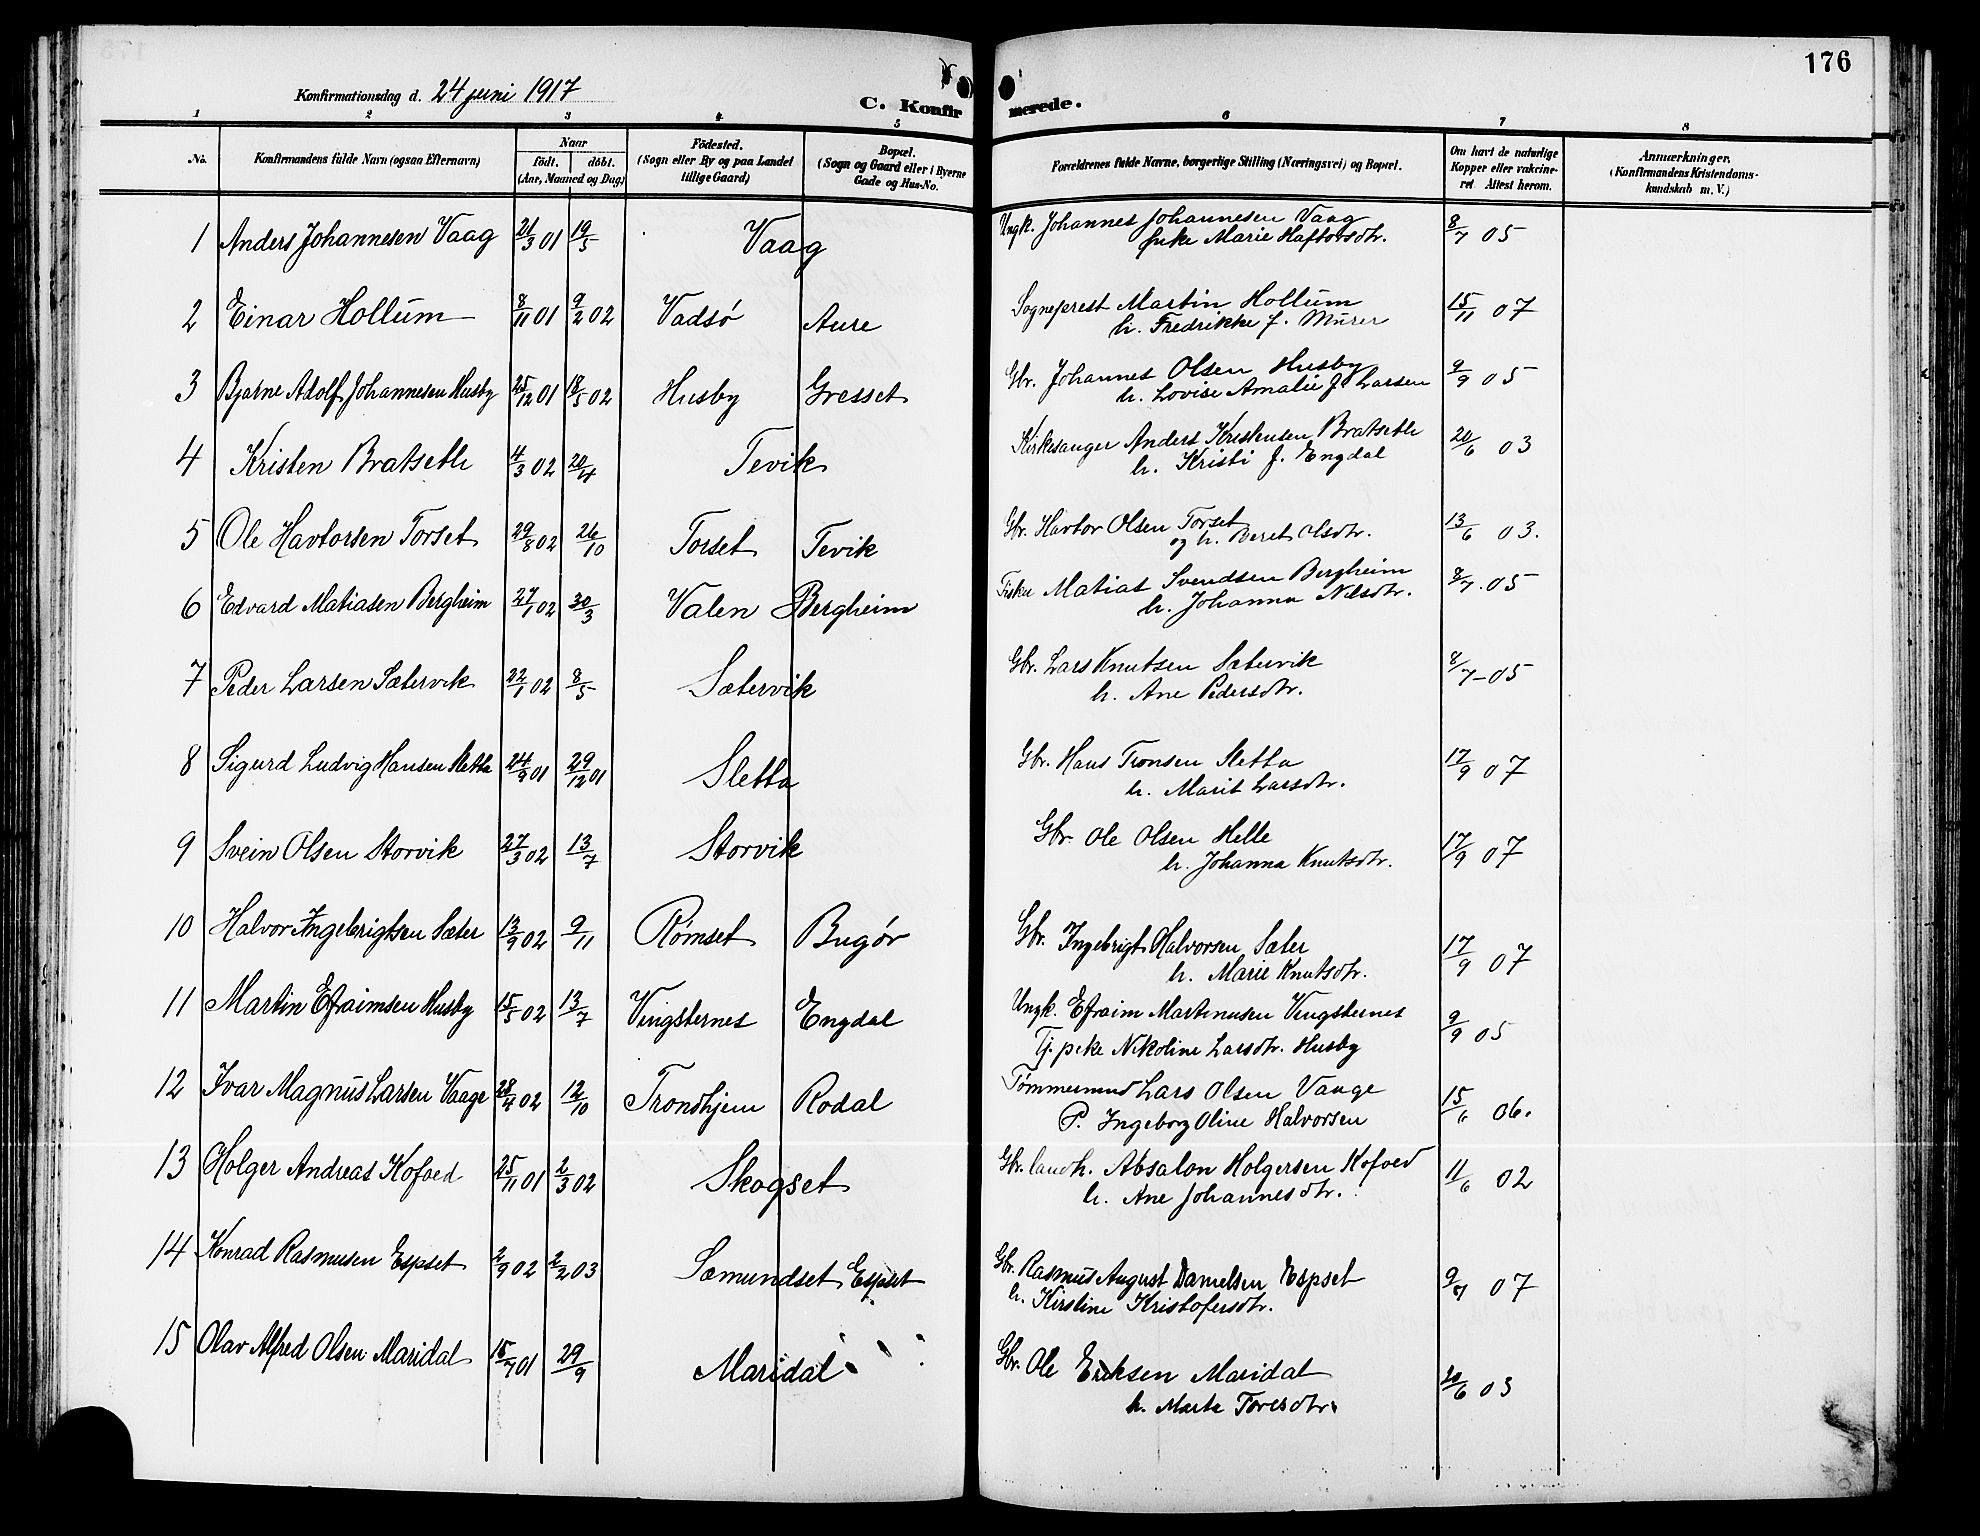 176
Konfirmationsdag d. 24 juni 1917
C. Konfirmerede.
1 2 3 4 5 6 7 8
No. Konfirmandens fulde Navn (ogsaa Efternavn) Naar födt. döbt. (Aar, Maaned og Dag) Födested. (Sogn eller By og paa Landet tillige Gaard) Bopæl. (Sogn og Gaard eller i Byerne Gade og Hus-No. Forældrenes fulde Navne, borgerlige Stilling (Næringsvei) og Bopæl. Om havt de naturlige Kopper eller vakcineret Attest herom. Anmærkninger. (Konfirmandens Kristendomskundskab m. V.)
1 Anders Johannesen Vaag 21/3 01 19/5 Vaag Ungk. Johannes Johannesen Vaag 8/7 05
pike Marie Haftorsdtr.
2 Einar Hollum 8/11 01 9/2 02 Vadsø Aure Sogneprest Martin Hollum 15/11 07
h. Fredrikke f. Murer
3 Bjarne Adolf Johannesen Husby 25/12 01 18/5 02 Husby Gresset Gbr. Johannes Olsen Husby 9/9 05
h. Lovise Amalie f. Larsen
4 Kristen Bratseth 4/3 02 20/4 Tevik Kirkesanger Anders Kristensen Bratseth 20/6 03
h. Kristi f. Engdal
5 Ole Havtorsen Torset 29/8 02 26/10 Torset Tevik Gbr. Havtor Olsen Torset 13/6 03.
og h. Beret Olsdtr.
6 Edvard Matiasen Bergheim 27/1 02 30/3 Valen Bergheim Fisker Matias Svendsen Bergheim 8/7. 05
h. Johanna Nilsdtr.
7 Peder Larsen Sætervik 22/1 02 8/5 Sætervik Gbr. Lars Knutsen Sætervik 8/7 - 05
h. Ane Pedersdtr.
8 Sigurd Ludvig Hansen Sletta 24/9 01 29/12 01 Sletta Gbr. Hans Tronsen Sletta 17/9 07
h. Marit Larsdtr.
9 Svein Olsen Storvik 27/3 02 13/7 Storvik Gbr. Ole Olsen Helle 17/9 07
h. Johanna Knutsdtr.
10 Halvor Ingebrigtsen Sæter 13/9 02 9/11 Rømset Bugør Gbr. Ingebrigt Halvorsen Sæter 17/9 07
h. Marie Knutsdtr.
11 Martin Efraimsen Husby 15/5 02 13/7 Vingsternes Engdal Ungk. Efraim Martinusen Vingsternes 9/9 05
Tj. pike Nikoline Larsdtr. Husby
12 Ivar Magnus Larsen Vaage 28/4 02 12/10 Trondhjem Rodal Tømmermand Lars Olsen Vaage 15/6 06.
P. Ingeborg Oline Halvorsen
13 Holger Andreas Kofoed 25/11 01 2/3 02 Skogset Gbr. landh. Absalon Holgersen Kofoed 11/6 02
h. Ane Johannesdtr.
14 Konrad Rasmusen Espset 2/9 02 2/2 03 Sæmundset Espset Gbr. Rasmus August Danielsen Espset 07
h. Kirstine Kristofersdtr.
15 Olav Alfred Olsen Maridal 15/7 01 29/9 Maridal Gbr. Ole Eriksen Maridal 20/6 03
h. Marta Toresdtr.